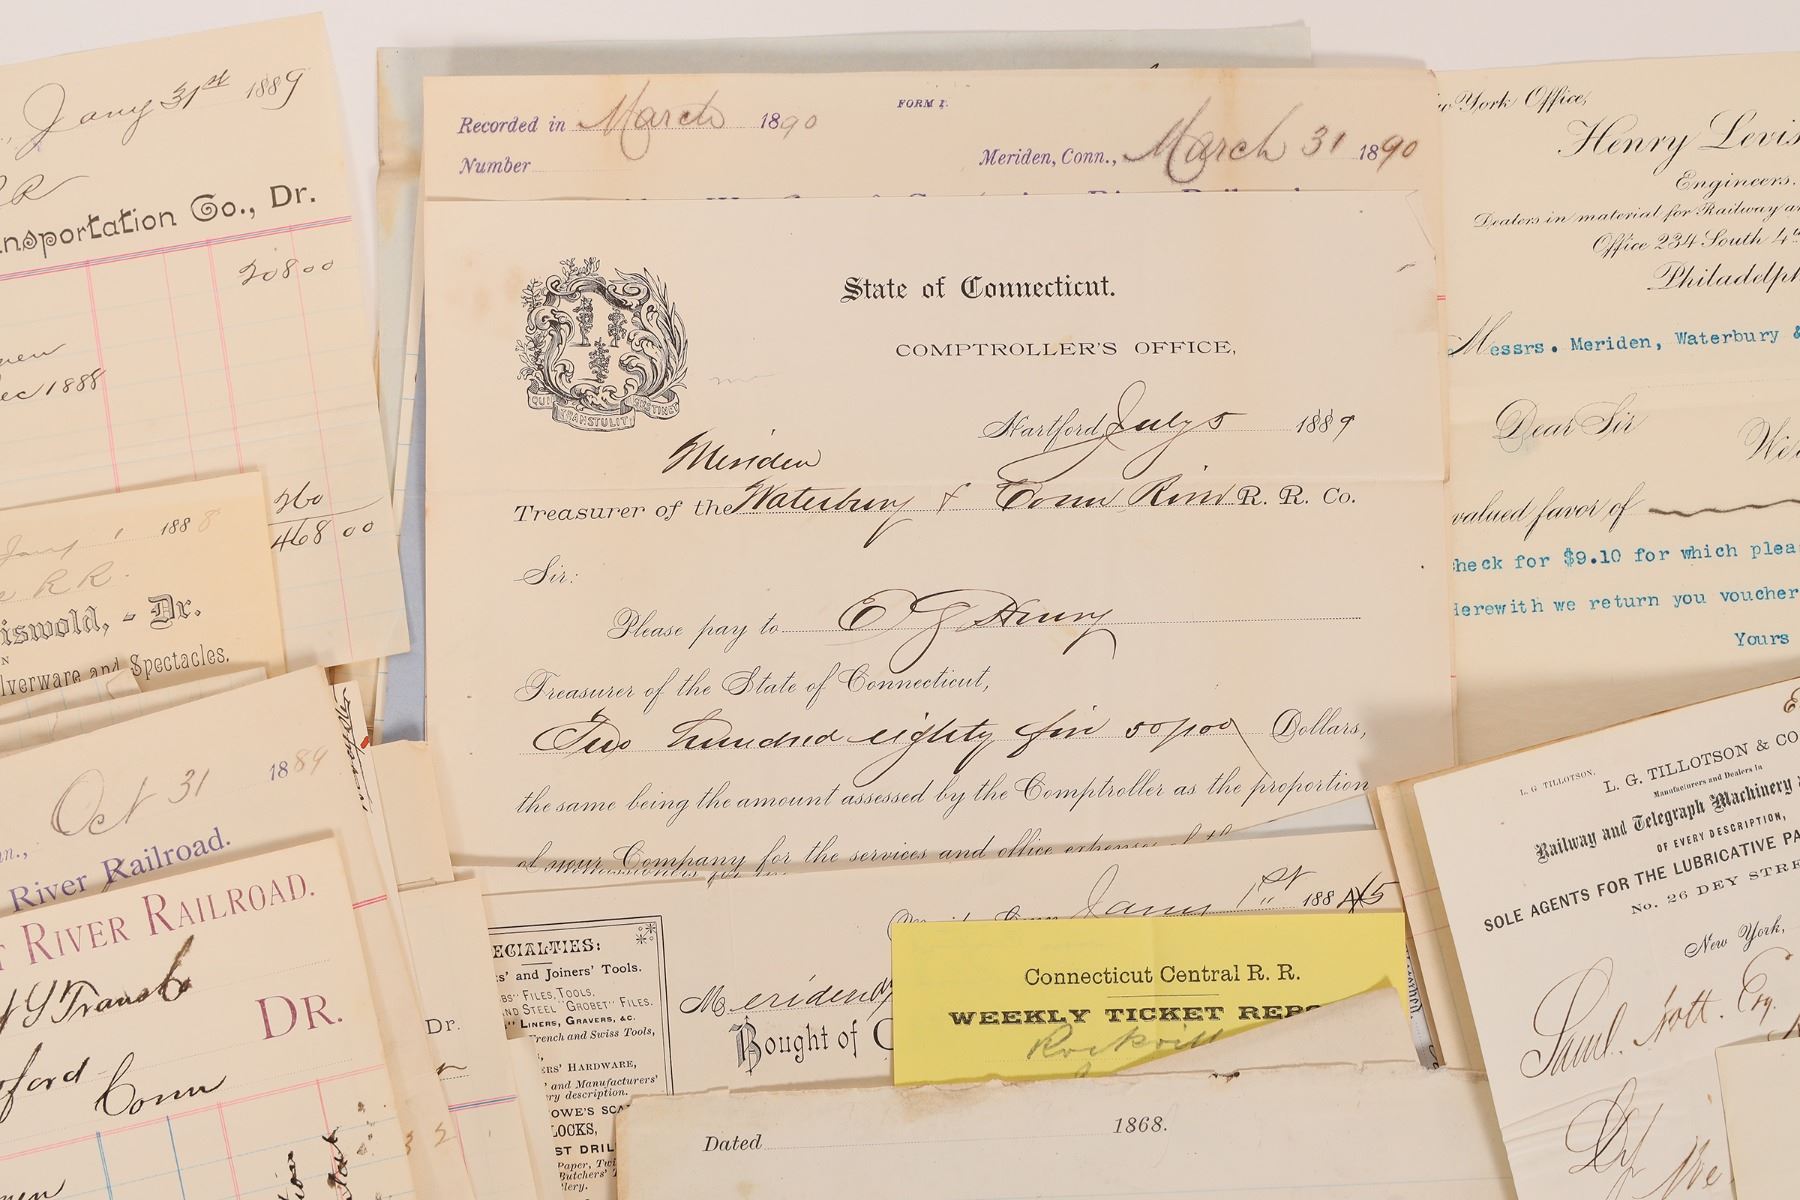 Jany 31st 1889
RR
Transportation Co., Dr.
208 00
Dec 1888
260
468 00
Jany 1 1888
RR.
riswold, - Dr.
lverware and Spectacles.
Oct 31 1889
nn.,
River Railroad.
River Railroad.
N Y Trans Co
DR.
ford
Conn
Dr.
Recorded in March 1890
FORM 1.
Number
Meriden, Conn., March 31 1890
State of Connecticut.
COMPTROLLER'S OFFICE,
QUI TRANSTULIT SUSTINET
Hartford, July 5 1889
Meriden
Treasurer of the Waterbury & Conn River R. R. Co.
Sir:
Please pay to E S Henry
Treasurer of the State of Connecticut,
Two hundred eighty five 50/100 Dollars,
the same being the amount assessed by the Comptroller as the proportion
of your Company for the services and office expenses of the
New York Office,
Henry Levis
Engineers.
Dealers in material for Railway
Office 234 South 4th
Philadelph
Messrs. Meriden, Waterbury &
Dear Sir
valued favor of
check for $9.10 for which pleas
Herewith we return you voucher
Yours
L. G. TILLOTSON.
L. G. TILLOTSON & CO
Manufacturers and Dealers in
Railway and Telegraph Machinery
OF EVERY DESCRIPTION,
SOLE AGENTS FOR THE LUBRICATIVE PA
No. 26 DEY STRE
New York,
Saml. Nott. Esq.
Jany 1st 1885
Meriden
Bought of C
ECIALTIES:
s' and Joiners' Tools.
BS' FILES, TOOLS,
ND STEEL "GROBET" FILES.
LINERS, GRAVERS, &C.
rench and Swiss Tools,
ERS' HARDWARE,
and Manufacturers'
ry description.
OWE'S SCA
LOCKS,
ST DRIL
Paper, Twi
Butchers' T
lery.
Connecticut Central R. R.
WEEKLY TICKET REPO
Rockvill
Dated 1868.